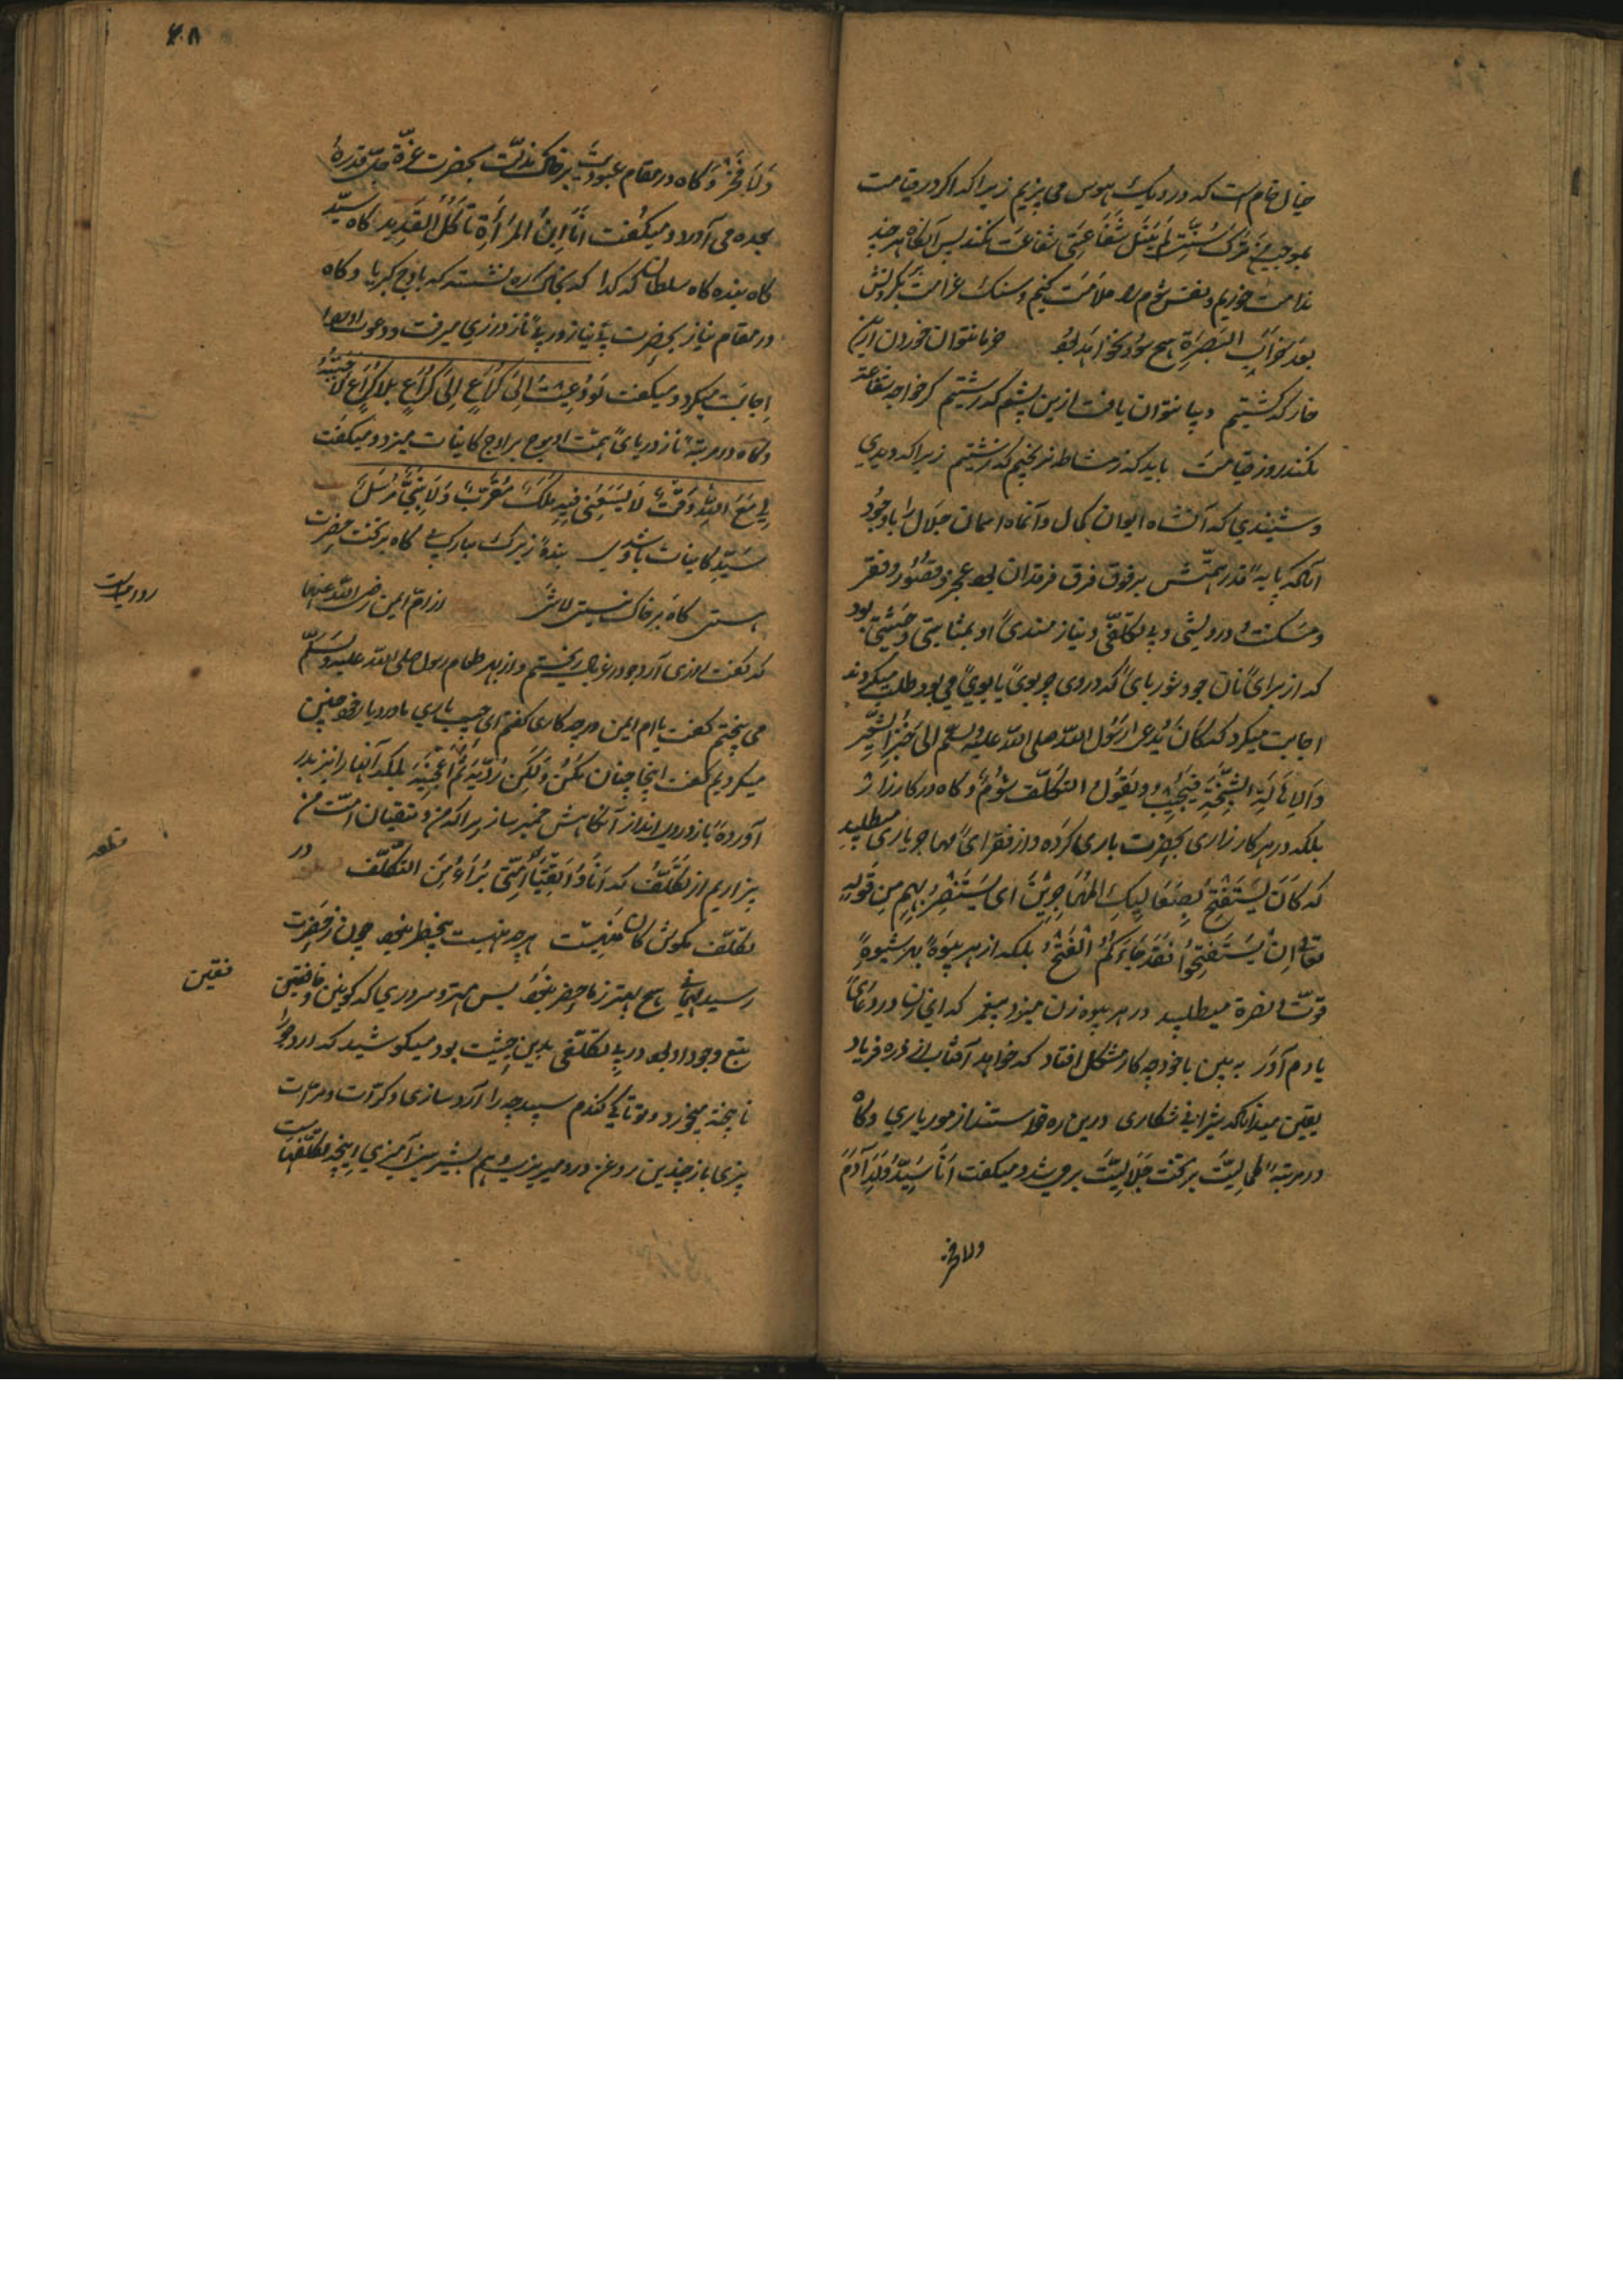 خیال خام است که در دیک هوس می پزیم زیراکه اکر در قیامت
بموجب من ترک سنتی لم ینل شفاعتی شفاعت نکند پس آنکاه هر چند
ندامت خوریم و نفس شوم را ملامت کنیم و سنک غرامت بکردنش
بعد خراب البصرة هیچ سود نخواهد بود خرما نتوان خوردن ازین
خار که کشتیم دیبا نتوان یافت ازین پشم که رشتیم کر خواجه شفاعت
نکند روز قیامت باید که ز مشاطه نرنجیم که زشتیم زیراکه دیدی
و شنیدی که آن شاه ایوان کمال و آن ماه اسمان جلال با وجود
آنکه پایهٔ قدر همتش بر فوق فرق فرقدان بود عجز و قصور و فقر
و مسکنت و درویشی و بی تکلفی و نیازمندی او بمثابتی و حیثیتی بود
که از برای نان جو و شوربای که در وی چربوی یا بویی می بود طلب میکردند
اجابت میکرد که کان یدعی رسول الله صلی الله علیه وسلم الی خبز الشعیر
والاهالة السنخة فیجیب ویقول التکلف شوم و کاه در کارزار
بلکه در هر کار زاری بحضرت باری کرده و از فقرای مهاجر یاری میطلبید
که کان یستفتح بصعالیک المهاجرین ای یستنصر بهم من قوله
تعالی ان یستفتحوا فقد جاءکم الفتح بلکه از هر بیوه بهر شیوه
قوت و نصرة میطلبید در هر بیوه زن میزد پیغمبر که ای زن در دعای
یادم آور به بین با خود چه کار مشکل افتاد که خواهد آفتاب از ذره فریاد
یقین میدانکه شیران شکاری درین ره خواستند از مور یاری و کاه
در مرتبهٔ عالیت بر تخت جلالیت بر میشد و میکفت انا سید ولد آدم
ولا فخر
۴۸
ولا فخر و کاه در مقام عبودیت بر خاک مذلت بحضرت عزة جل قدره
سجده می آورد و میکفت انا ابن المرأة تأکل القدید کاه سید
کاه بنده کاه سلطان که کدا که بخاک ره نشسته که باوج کبریا و کاه
در مقام نیاز بحضرت بی نیاز در پی ناز درزی میرفت و دعوت او را
اجابت میکرد و میکفت لو دعیت الی کراع الی کراع بلا کراع لاجبته
و کاه در مرتبهٔ ناز دریای همت او موج بر اوج کاینات میزد و میکفت
لی مع الله وقت لا یسعنی فیه ملک مقرب ولا نبی مرسل
سید کاینات باشدی بندهٔ زیرک مبارک پی کاه بر تخت حضرت
هستی کاه بر خاک نیستی لاشی از ام ایمن رضی الله عنها
روایتست
که کفت روزی آرد جو در غربال ریختم و از بهر طعام رسول صلی الله علیه وسلم
می پختم کفت یا ام ایمن در چه کاری کفتم ای حبیب باری ما در دیار خود چنین
میکردیم کفت اینجا چنان مکن ولکن ردیه ثم اعجنیه بلکه آنها را نیز بدر
آورده باز در وی انداز آنکاهش خمیر ساز زیراکه من و متقیان امت من
بیزاریم از تکلف که انا و اتقیاء امتی براء من التکلف در
تکلف مکوش کان منهیست هر چه منهیست بیخطر نبود چون ز حضرت
رسید مهمانی هیچ بهتر ز ما حضر نبود پس مهتر و سروری که کونین و ثقلین
ثقلین
بتبع وجود او بود در بی تکلفی بدین حیثیت بود میکوشید که آرد جو را
نابیخته میخورد و تو تا کی کندم سپید چه را آرد سازی و کرات و مرات
بیزی باز چندین روغن در خمیر ریزی و هم بشیرینی آمیزی این چه تکلفهاست